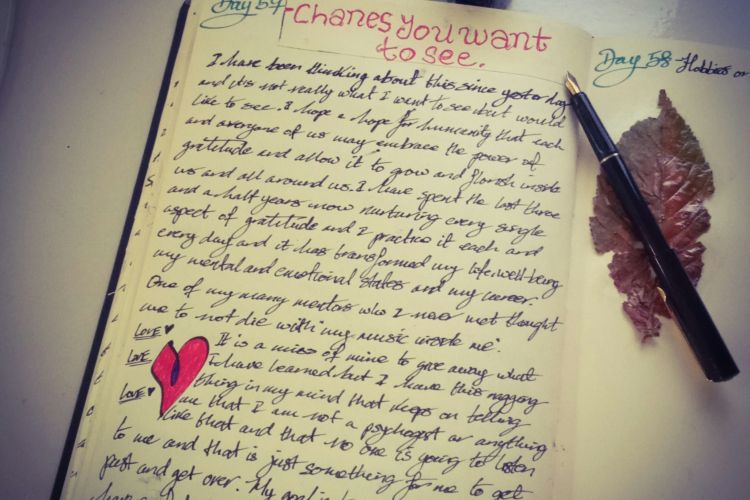 Day 57
Chanes you want
to see.
I have been thinking about this since yesterday
and it's not really what I want to see but would
like to see. I hope a hope for humanity that each
and everyone of us may embrace the power of
gratitude and allow it to grow and florish inside
us and all around us. I have spent the last three
and a half years now nurturing every single
aspect of gratitude and I practice it each and
every day and it has transformed my life, well-being
my mental and emotional states and my career.
One of my many mentors who I never met thought
me to not die with "my music inside me".
LOVE ♥
It is a miss of mine to give away what
LOVE
I have learned but I have this nagging
LOVE ♥
thing in my mind that keeps on telling
me that I am not a or anything
like that and that no one is going to listen
to me and that is just something for me to get
past and get over. My goal is
have a
Day 58 Hobbies or